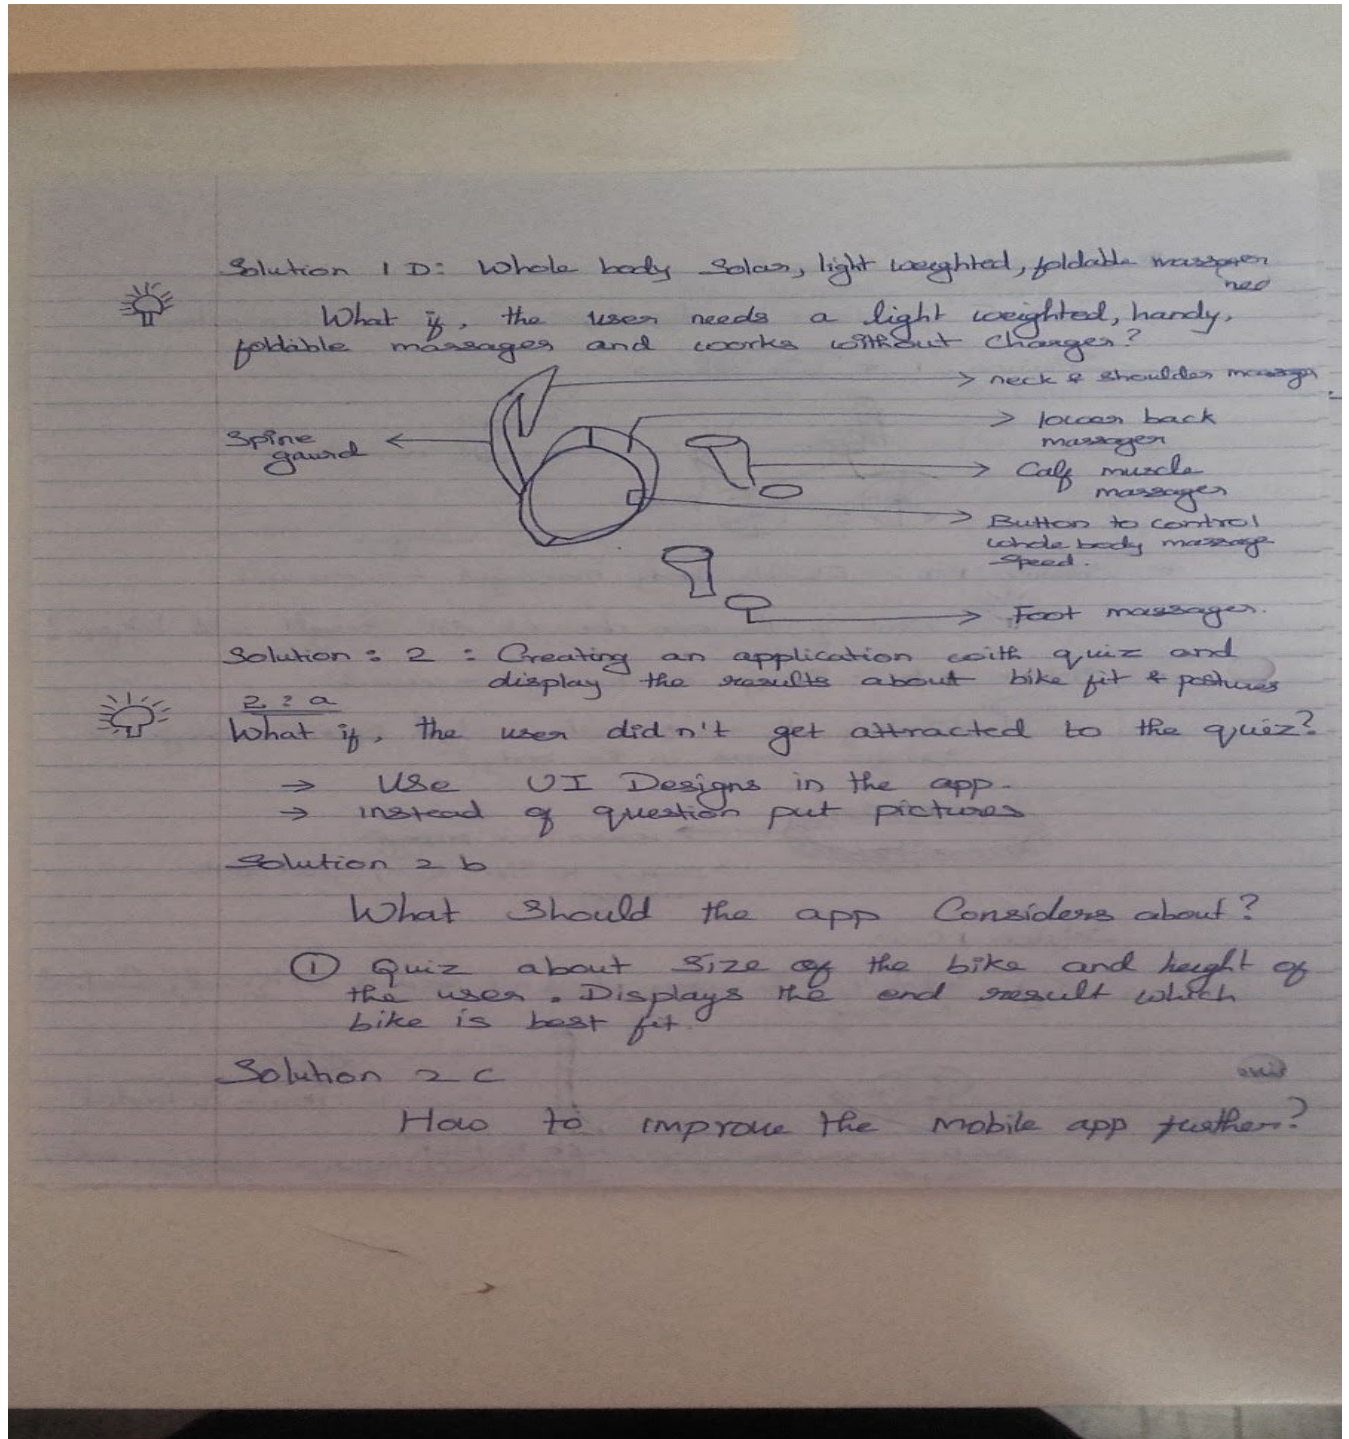 Solution 1 D: Whole body Solar, light weighted, foldable massager
What if, the user needs a light weighted, handy,
foldable massager and works without charger?
neck & shoulder massager
lower back
massager
Spine
gaurd
Calf muscle
massager
Button to control
whole body massage
speed.
Foot massager.
Solution : 2 : Creating an application with quiz and
display the results about bike fit & postures
2 : a
What if, the user didn't get attracted to the quiz?
→ Use UI Designs in the app.
→ instead of question put pictures
Solution 2 b
What should the app Considers about?
① Quiz about size of the bike and height of
the user. Displays the end result which
bike is best fit.
Solution 2 c
How to improve the mobile app further?